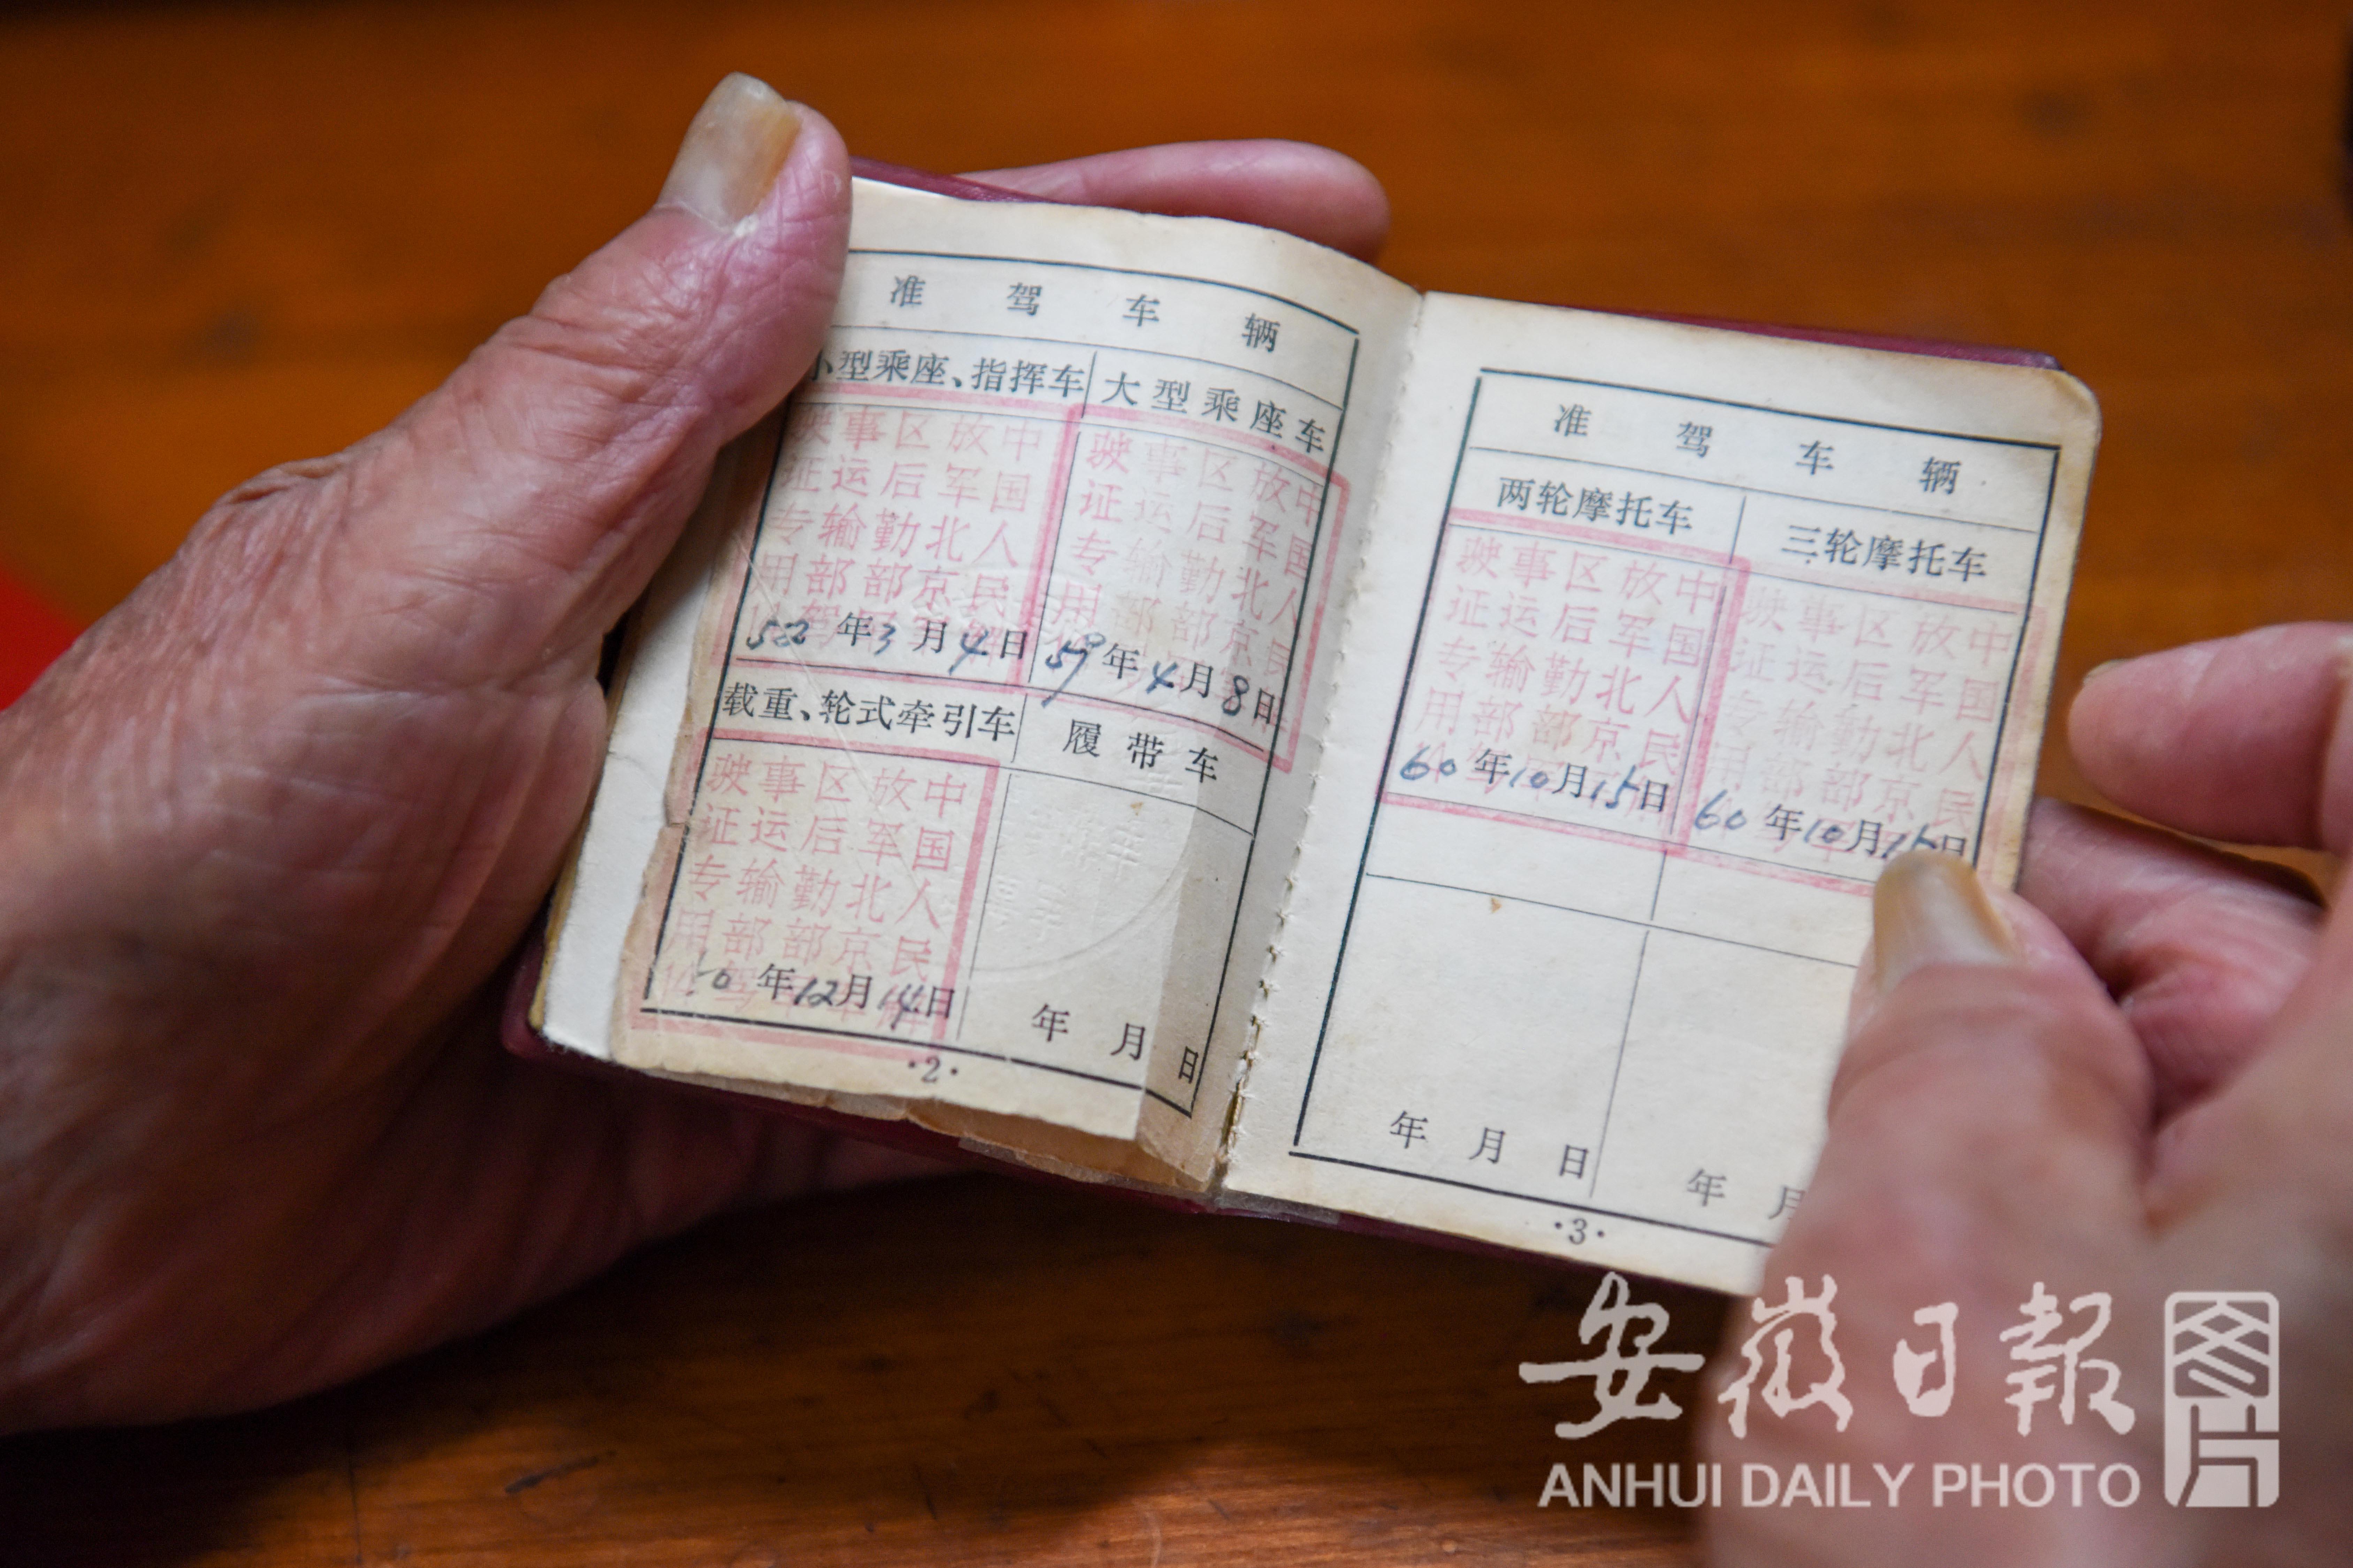 准驾车辆
小型乘座、指挥车
大型乘座车
中国人民解
放军北京军
区后勤部军
事运输部驾
驶证专用
52年3月4日
中国人民
放军北京
区后勤部
事运输部
驶证专用
59年4月8日
载重、轮式牵引车
履带车
中国人民解
放军北京军
区后勤部军
事运输部驾
驶证专用
年12月14日
年月日
·2·
准驾车辆
两轮摩托车
三轮摩托车
中国人民
放军北京
区后勤部
事运输部
驶证专用
60年10月15日
中国人民
放军北京
区后勤部
事运输部
驶证专用
60年10月15日
年月日
年月
·3·
安徽日報
图片
ANHUI DAILY PHOTO